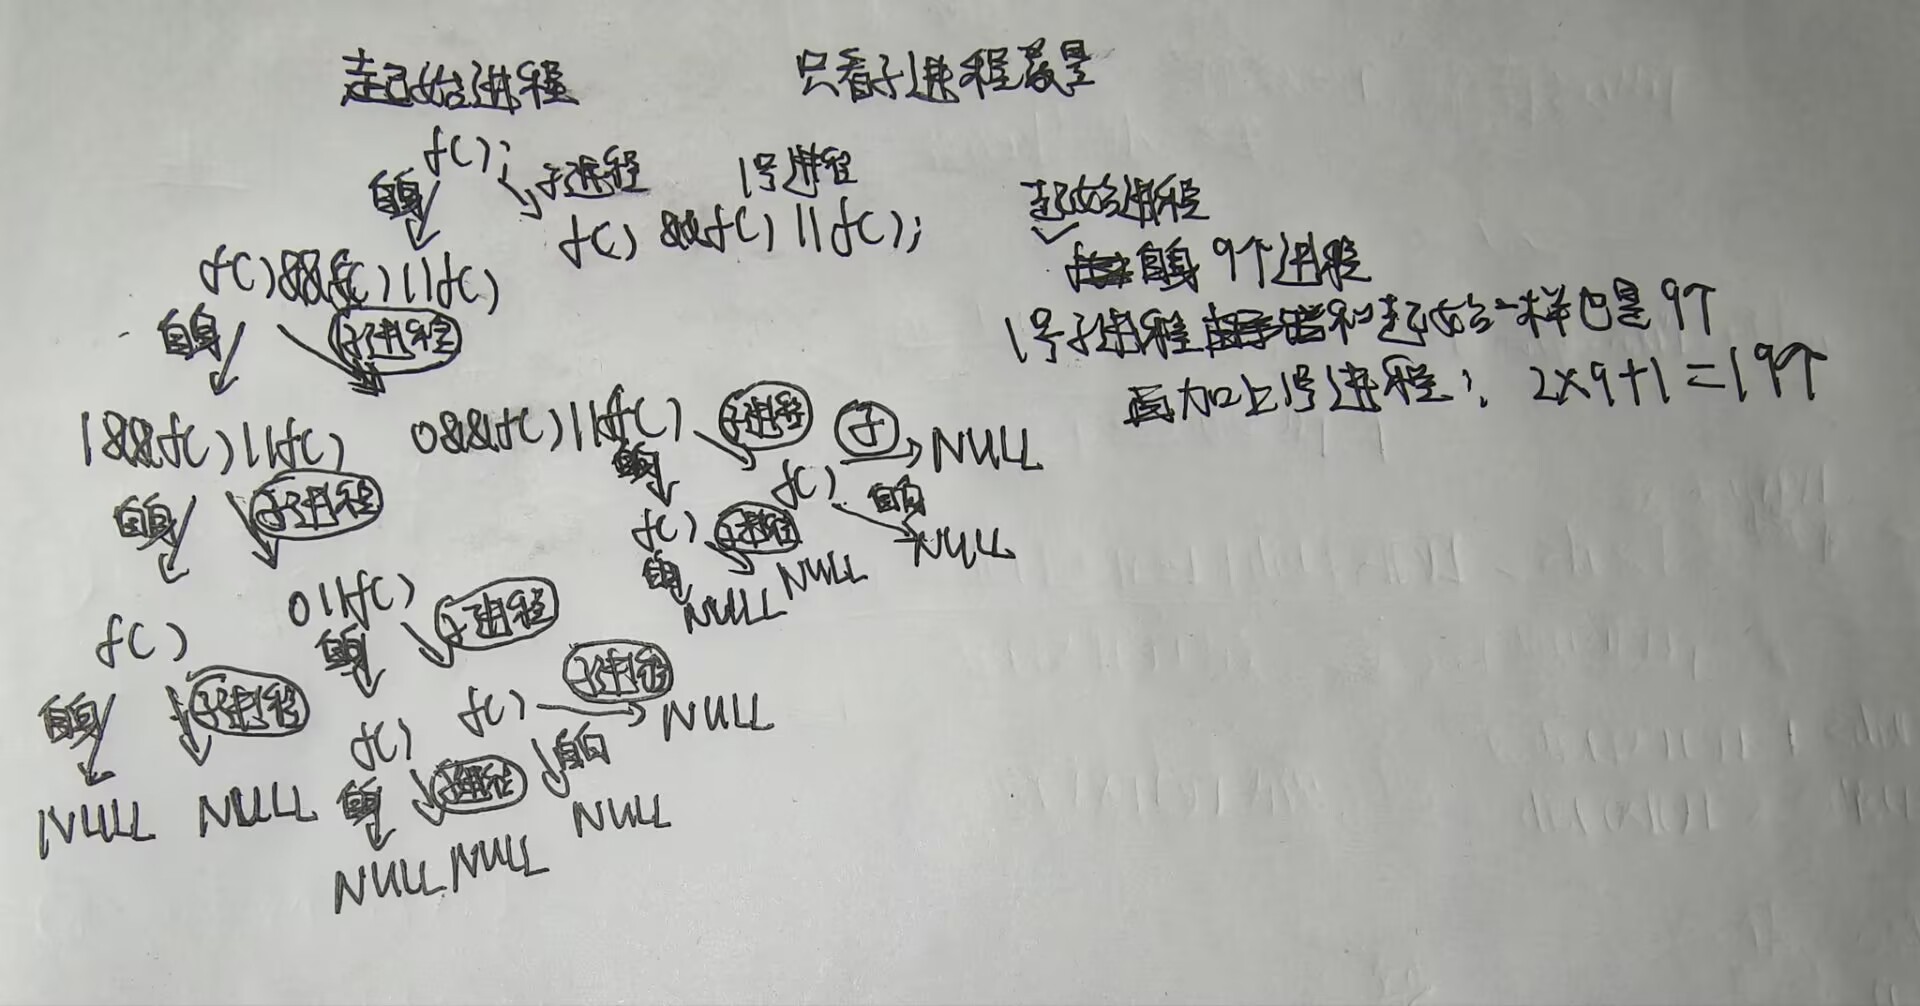 起始进程 只看子进程数量
f();
自身 子进程 1号进程
f() && f() || f();
f() && f() || f()
自身 子进程
1 && f() || f() 0 && f() || f() 子进程 子 NULL
自身 f() 自身 NULL
自身 子进程
f() 子进程 NULL
自身 NULL
f() 0 || f() 子进程
自身
自身 子进程 f() 子进程 NULL
f() 自身
NULL NULL 自身 子进程 NULL
NULL NULL
起始进程
自身 9个进程
1号子进程 和起始一样也是9个
再加上1号进程; 2×9+1=19个